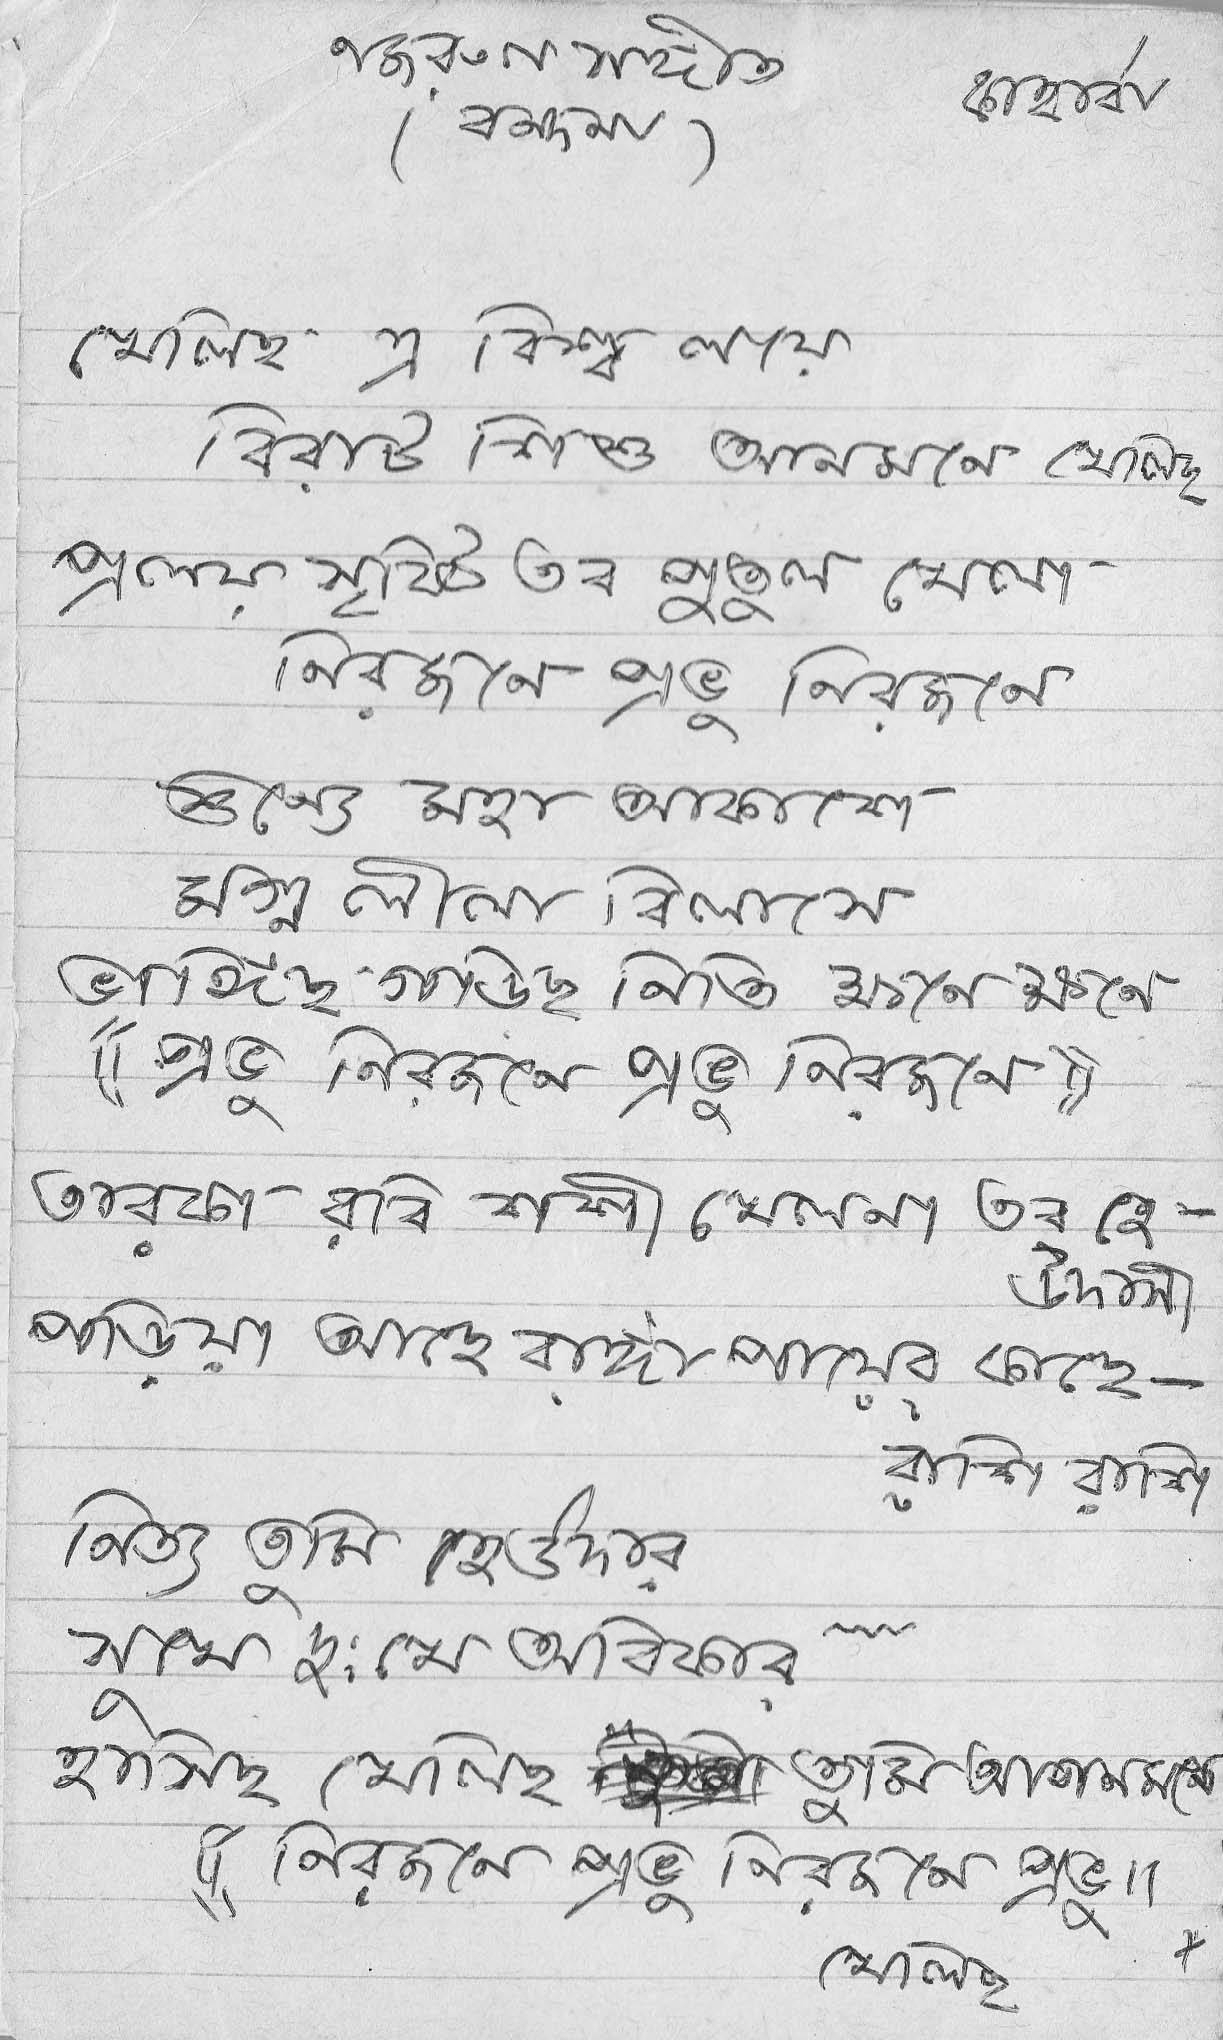 নজরুল সঙ্গীত
কাহার্বা
( বন্দনা )
খেলিছ এ বিশ্ব লয়ে
বিরাট শিশু আনমনে খেলিছ
প্রলয় সৃষ্টি তব পুতুল খেলা
নিরজনে প্রভু নিরজনে
শুন্যে মহা আকাশে
মগ্ন লীলা বিলাসে
ভাঙ্গিছ গড়িছ নিতি ক্ষনে ক্ষনে
(( প্রভু নিরজনে প্রভু নিরজনে ))
তারকা রবি শশী খেলনা তব হে -
উদাসী
পড়িয়া আছে রাঙ্গা পায়ের কাছে -
রাশি রাশি
নিত্য তুমি হে উদার
সুখে দুঃখে অবিকার
হাসিছ খেলিছ তুমি আনমনে
(( নিরজনে প্রভু নিরজনে প্রভু ॥
খেলিছ